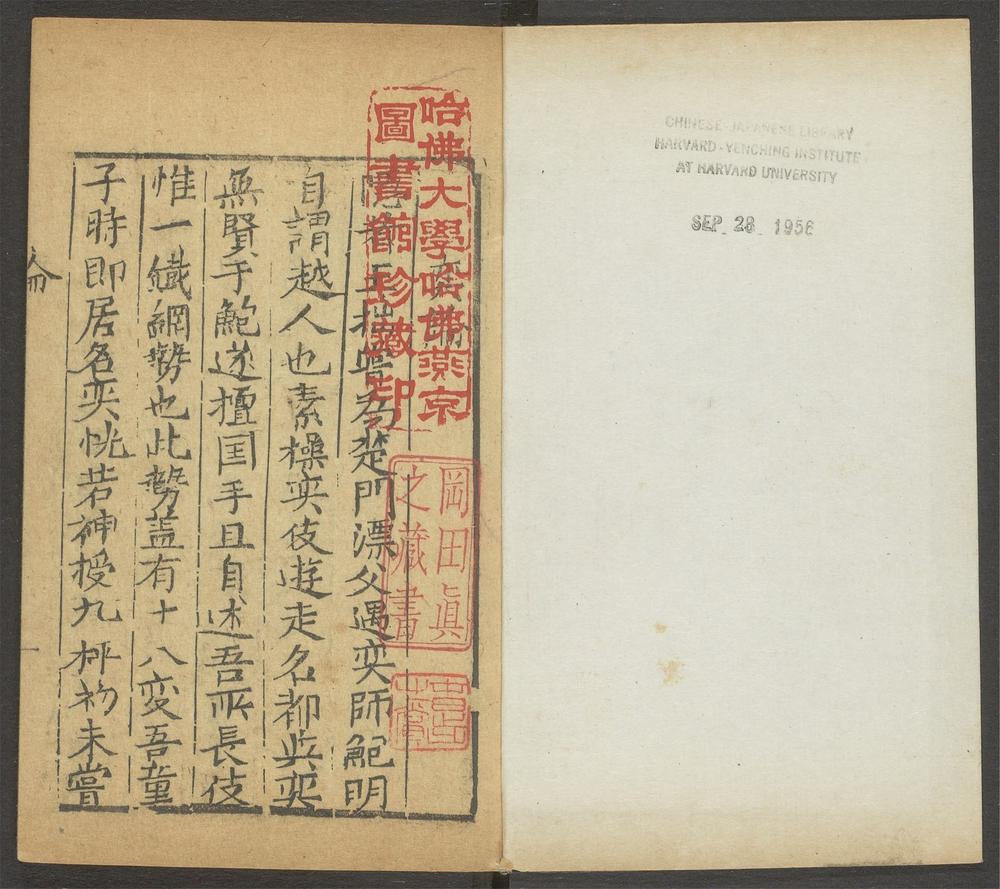 CHINESE-JAPANESE LIBRARY
HARVARD-YENCHING INSTITUTE
AT HARVARD UNIVERSITY
SEP 28 1956
哈佛大學哈佛燕京
圖書館珍藏印
岡田眞
之藏書
奕
楚門漂父遇奕師鮑明
自謂越人也素操奕伎遊走名都与奕
無賢于鮑遂擅国手且自述吾所長伎
惟一鐵網勢也此勢盖有十八変吾童
子時即居名奕恍若神授九枰初未嘗